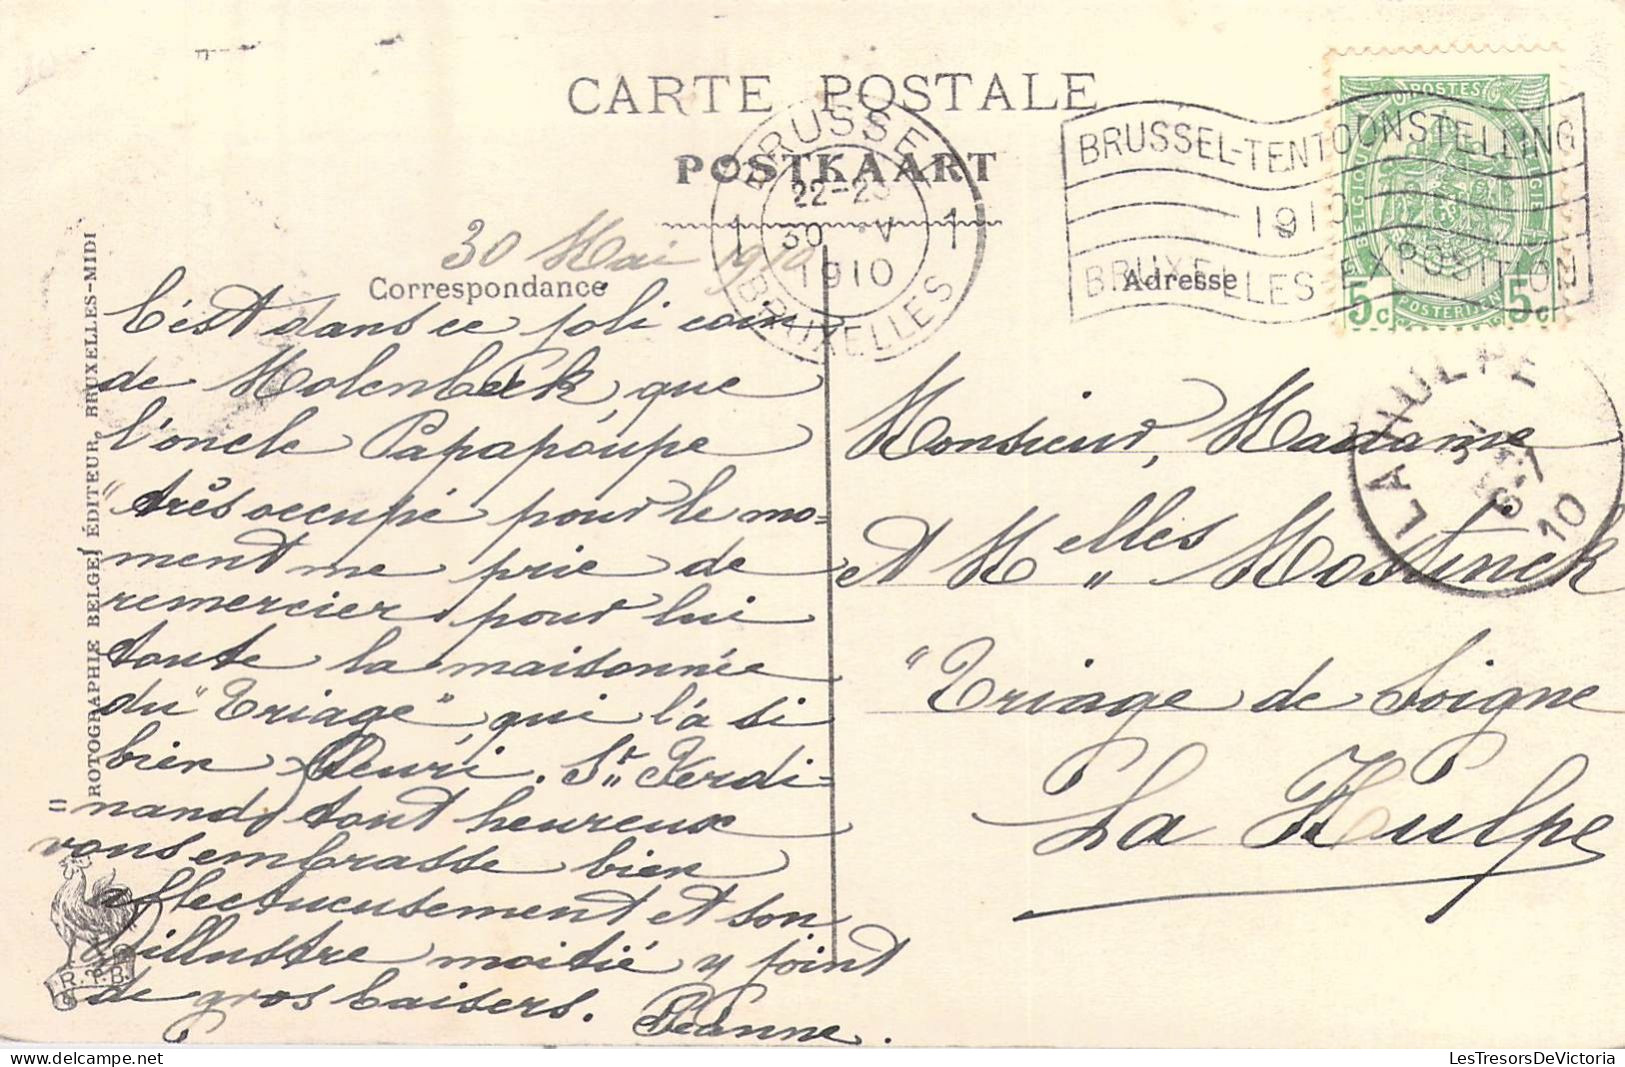 CARTE POSTALE
POSTKAART
BRUSSEL
22-23
1 30 V 1
1910
BRUXELLES
BRUSSEL-TENTOONSTELLING
1910
BRUXELLES-EXPOSITION
POSTES
BELGIQUE
5c 5c
POSTERIJEN
LA HULPE
10
30 Mai 1910
Correspondance
C'est dans ce joli coin
de Molenbeek, que
l'oncle Papapoupe
"très occupé pour le mo=
ment me prie de
remercier pour lui
toute la maisonnée
du "Triage", qui l'a si
bien fleuri. St. Ferdi=
nand, tout heureux
vous embrasse bien
affectueusement et son
illustre moitié y joint
de gros baisers. Jeanne.
Adresse
Monsieur, Madame
et Melles Mostinck
"Triage de Soigne
La Hulpe
ROTOGRAPHIE BELGE, ÉDITEUR, BRUXELLES-MIDI
R. B.
LesTresorsDeVictoria